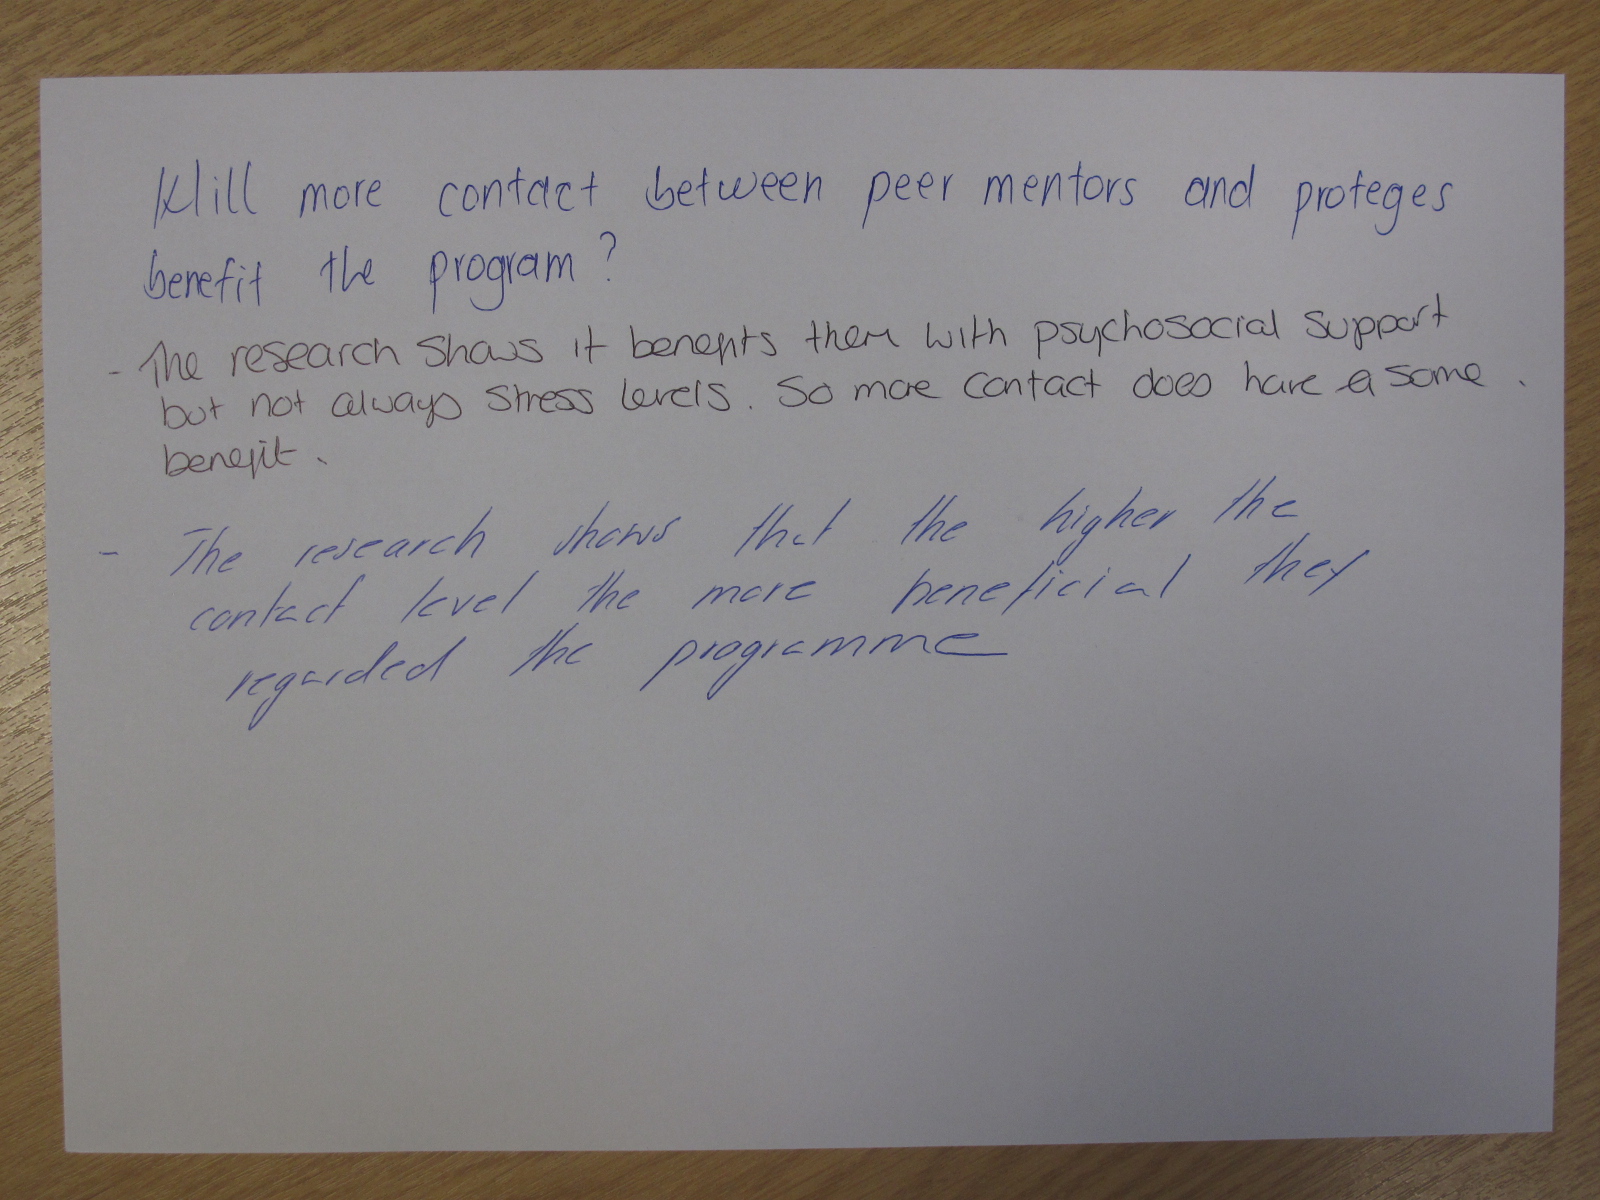 Will more contact between peer mentors and proteges
benefit the program?
- The research shows it benefits them with psychosocial support
but not always stress levels. So more contact does have a some
benefit.
- The research shows that the higher the
contact level the more beneficial they
regarded the programme